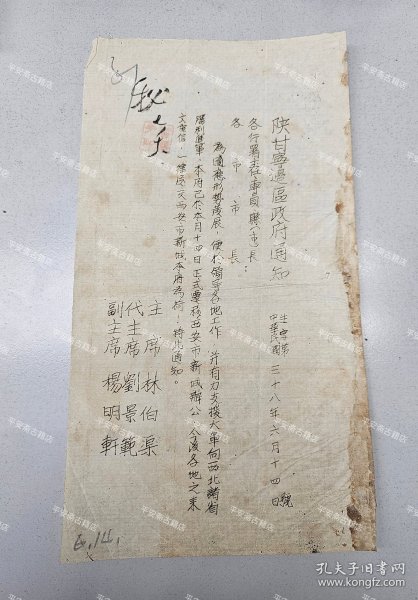 陕甘寧邊區政府通知
生字第 號
中華民國三十八年六月十四日
各行署主任、專員、縣（市）長
各市市長
為適應形勢發展，便於領導各地工作，并有力支援大軍向西北諸省
勝利進軍，本府已於本月十四日正式遷移西安市新城辦公，今後各地之来
文電信，一律逕交西安市新城本府為荷，特此通知。
主席 林伯渠
代主席 劉景範
副主席 楊明軒
6.14.
平安斋古籍店
孔夫子旧书网